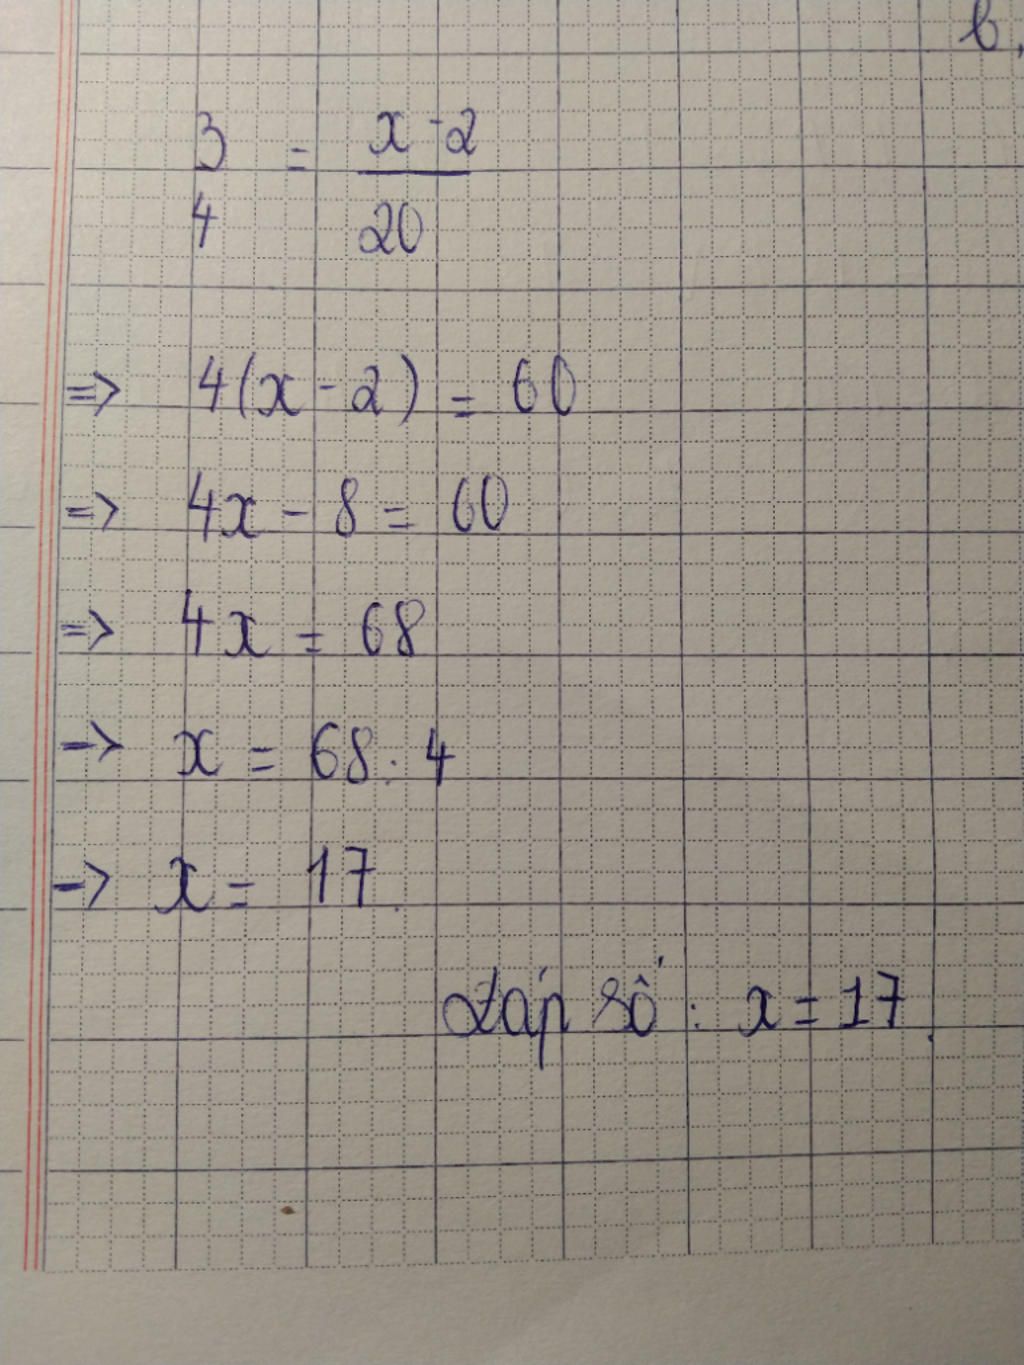 b,
3 = x - 2
4 20
=> 4(x - 2) = 60
=> 4x - 8 = 60
=> 4x = 68
-> x = 68 : 4
-> x = 17.
Đáp số : x = 17.